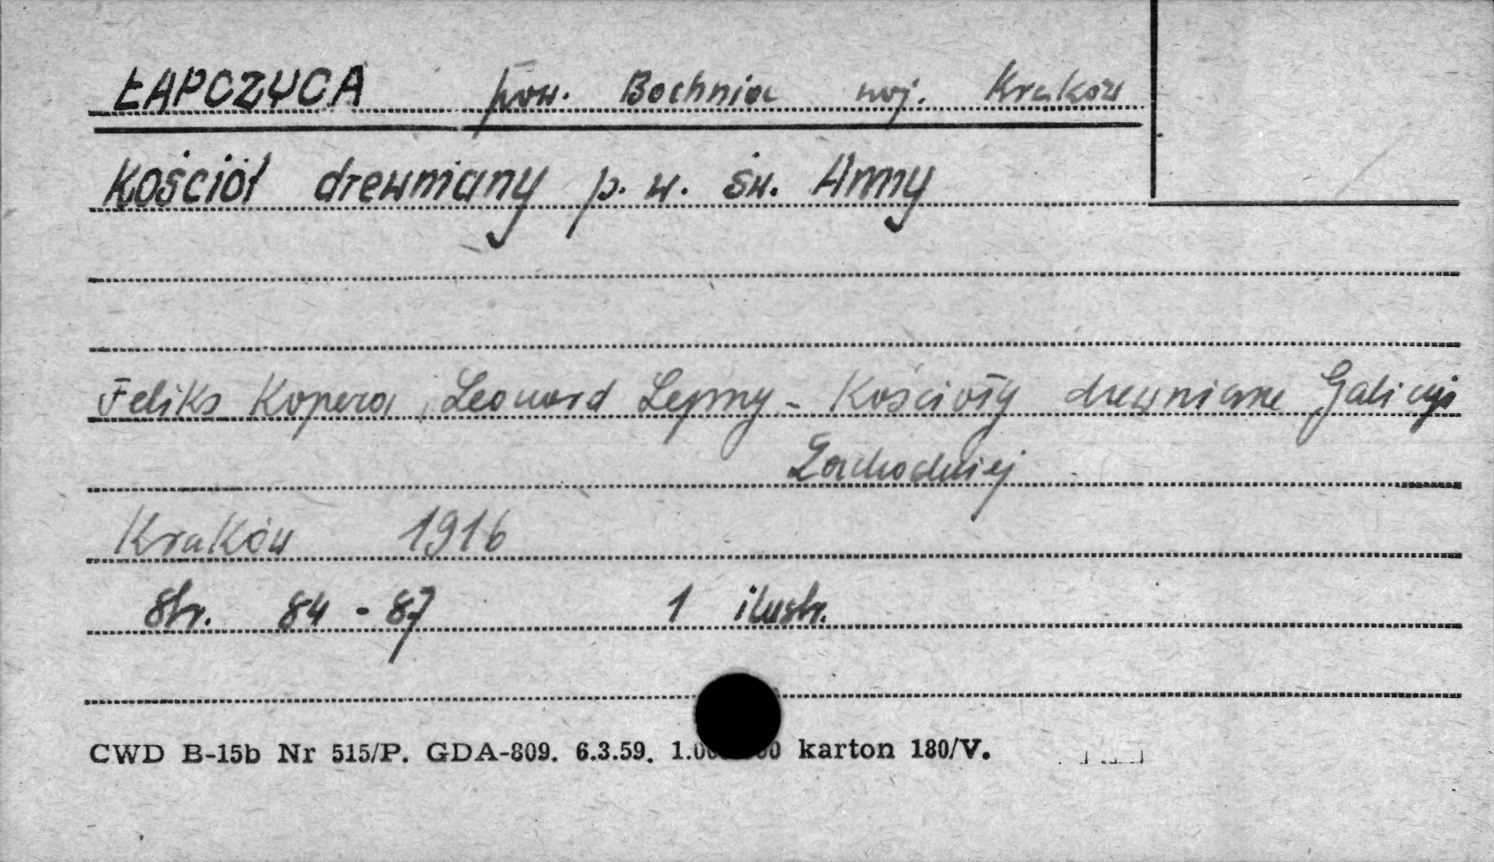 ŁAPCZYCA pow. Bochnia woj. Kraków
Kościół drewniany p.w. św. Anny
Feliks Kopera, Leonard Lepszy - Kościoły drewniane Galicyi
Zachodniej
Kraków 1916
Str. 84 - 87 1 ilustr.
CWD B-15b Nr 515/P. GDA-809. 6.3.59. karton 180/V.